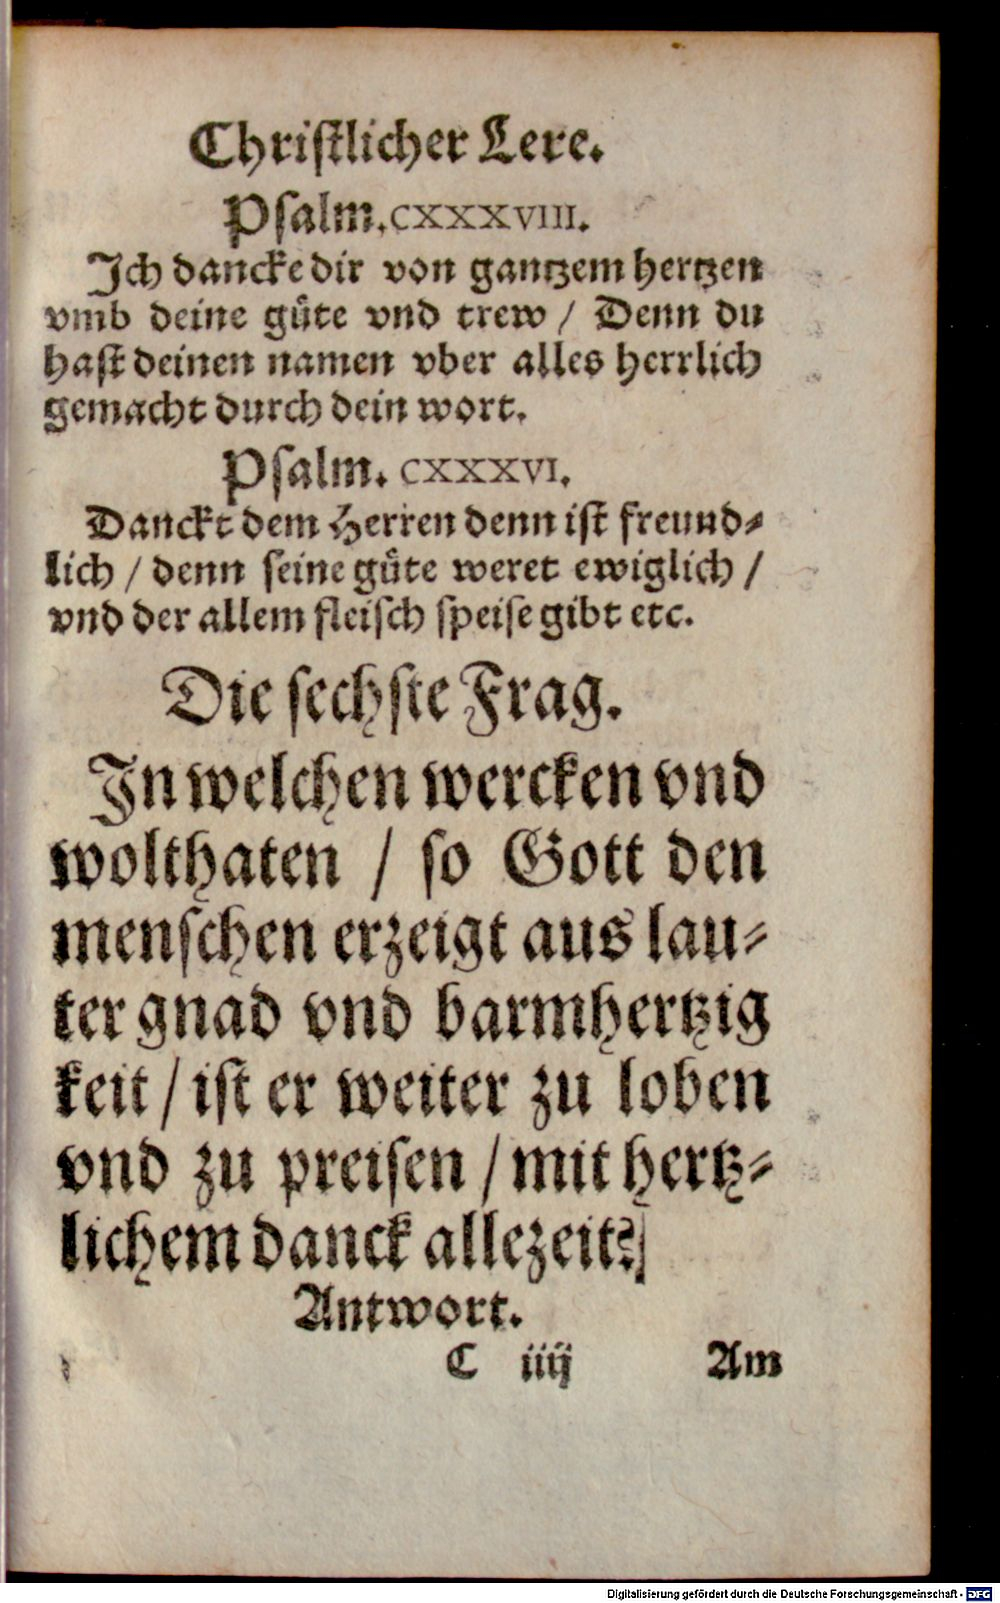 Christlicher Lere.
Psalm. CXXXVIII.
Ich dancke dir von gantzem hertzen
vmb deine güte vnd trew / Denn du
hast deinen namen vber alles herrlich
gemacht durch dein wort.
Psalm. CXXXVI.
Danckt dem Herren denn ist freund-
lich / denn seine güte weret ewiglich /
vnd der allem fleisch speise gibt etc.
Die sechste Frag.
In welchen wercken vnd
wolthaten / so Gott den
menschen erzeigt aus lau-
ter gnad vnd barmhertzig
keit / ist er weiter zu loben
vnd zu preisen / mit hertz-
lichem danck allezeit?
Antwort.
C iiij Am
Digitalisierung gefördert durch die Deutsche Forschungsgemeinschaft - DFG